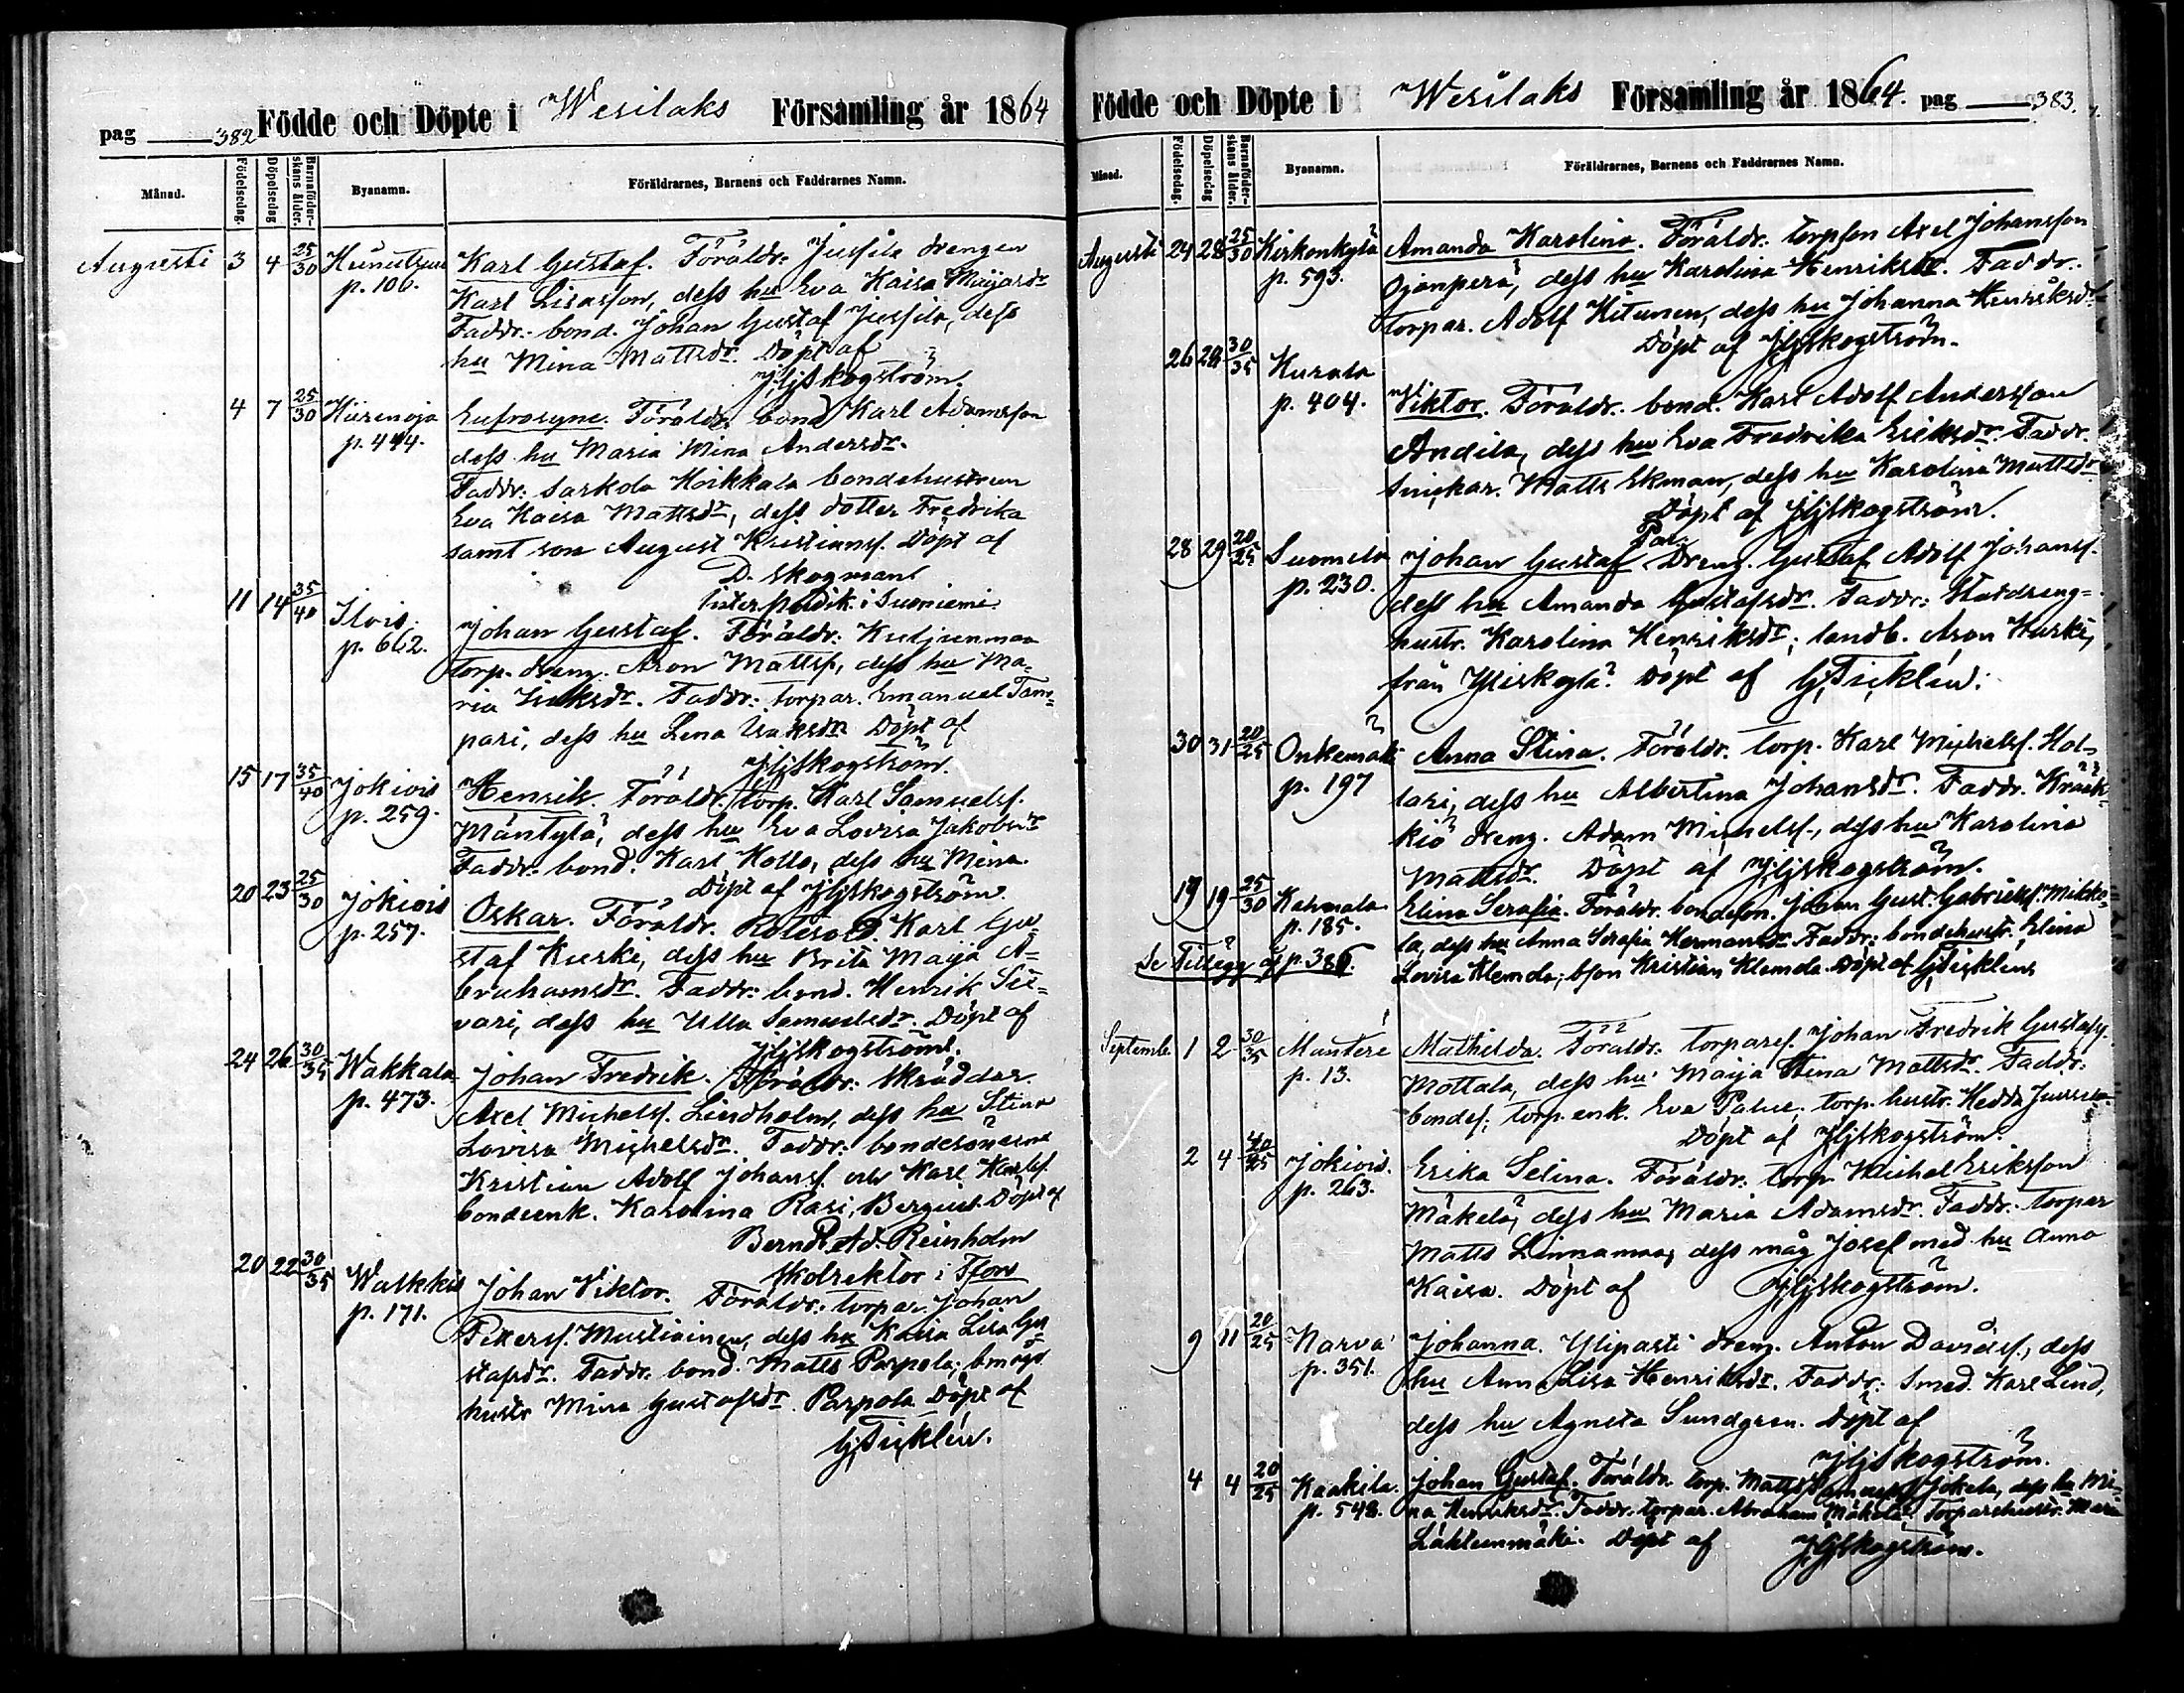 pag 382 Födde och Döpte i Wesilaks Församling år 1864
Månad. Födelsedag. Döpelsedag Barnaföderskans ålder. Byanamn. Föräldrarnes, Barnens och Faddrarnes Namn.
Augusti 3 4 25/30 Karl Gustaf. Föräldr: Jussila drengen
p. 106. Karl Lisasson, dess hu Eva Kaisa Maijasdr
Faddr: bond. Johan Gustaf Jussila, dess
hu Mina Mattsdr. Döpt af
Skogström.
4 7 25/30 Hiirenoja Eufrosyne. Föräldr. bond. Karl Adamsson
p. 444. dess hu Maria Mina Andersdr.
Faddr: Sarkola Hoikkala bondehustrun
Eva Kaisa Mattsdr, dess dotter Fredrika
samt son August Kristiansf. Döpt af
D. Skogman
i Suoniemi
11 14 35/40 Ilvis. Johan Gustaf. Föräldr: Kuljunmaa
p. 662. torp. dreng. Aron Mattsf, dess hu Ma-
ria Faddr: torpar. Emanuel Tam-
pari, dess hu Lena Isaksdr Döpt af
Skogström.
15 17 35/40 Jokiois Henrik. Föräldr. torp. Karl Samuelsf.
p. 259. Mäntylä, dess hu Eva Lovisa Jakobsdr
Faddr: bond. Karl Kollo, dess hu Mina
Döpt af Skogström.
20 23 25/30 Jokiois Oskar. Föräldr. Karl Gu-
p. 257. staf Kurki, dess hu Brita Maija A-
brahamsdr. Faddr: bond. Henrik Sii-
vari, dess hu Ulla Samuelsdr. Döpt af
Skogström.
24 26 30/35 Wakkala Johan Fredrik. Föräldr: Skräddar.
p. 473. Axel Michelsf. Lindholm, dess hu Stina
Lovisa Michelsdr. Faddr: bondesönerne
Kristian Adolf Johansf. och Karl Karlsf.
bondeenk. Karolina Rasi, Bergert. Döpt af
Bernd. Ad. Reinholm
Skolrektor i Tfors
20 22 30/35 Walkkis Johan Viktor. Föräldr: torpar. Johan
p. 171. Petersf. Mustiainen, dess hu Kaisa Lisa Gu-
stafsdr. Faddr. bond. Matts Parpola; bmågs
hustr Mina Gustafsdr. Parpola Döpt af
G. Ticklén.
Födde och Döpte i Wesilaks Församling år 1864. pag 383.
Månad. Födelsedag. Döpelsedag Barnaföderskans ålder. Byanamn. Föräldrarnes, Barnens och Faddrarnes Namn.
Augusti 24 28 25/30 Kirkonkylä Amanda Karolina. Föräldr: torpson Axel Johansson
p. 593. Ojanperä, dess hu Karolina Henriksdr. Faddr:
torpar. Adolf Hitunen, dess hu Johanna Henriksdr
Döpt af Skogström.
26 29 30/35 Kurala
p. 404. Viktor. Föräldr: bond. Karl Adolf Andersson
Andila, dess hu Eva Fredrika Eriksdr. Faddr.
Snickar. Matts Ekman, dess hu Karolina Mattsdr
Döpt af Skogström.
28 29 20/25 Suomela Johan Gustaf Dreng. Gustaf Adolf Johansf.
p. 230. dess hu Amanda Gustafsdr. Faddr: Statdreng-
hustr. Karolina Henriksdr; landb. Aron Kurki,
från Yliskylä. Döpt af G. Ticklén.
30 31 20/25 Onkemäki Anna Stina. Föräldr. torp. Karl Michelsf. Hol-
p. 197 lari, dess hu Albertina Johansdr. Faddr. Krääk-
kiö dreng. Adam Michelsf., dess hu Karolina
Mattsdr. Döpt af Skogström.
19 19 25/30 Kalmala Elina Serafia. Föräldr. bondeson. Johan Gust. Gabrielsf. Mikko-
p. 185. la, dess hu Anna Serafia Hermansdr. Faddr: bondehustr. Elina
Se Tillägg å p. 386. Lovisa Klemola; bson Kristian Klemola. Döpt af G. Ticklén
September 1 2 30/35 Mantere Mathilda. Föräldr. torparef. Johan Fredrik Gustafsf.
p. 13. Mottala, dess hu Maija Stina Mattsdr. Faddr:
bondef; torp. enk. Eva Palu; torp. hustr. Hedda Jussila
Döpt af Skogström.
2 4 20/25 Jokiois. Erika Selina. Föräldr: torp. Michel Eriksson
p. 263. Mäkelä, dess hu Maria Adamsdr. Faddr. torpar
Matts Linnamaa, dess måg Josef med hu Anna
Kaisa. Döpt af Skogström.
9 11 20/25 Narva Johanna. Ylipasti dreng. Anton Davidsf., dess
p. 351. hu Anna Lisa Henriksdr. Faddr: Smed. Karl Lind,
dess hu Agneta Sundgren. Döpt af
Skogström.
4 4 20/25 Kaakila. Johan Gustaf. Föräldr. torp. Matts Samuelsf. Jokela, dess hu Mi-
p. 548. na Henriksdr. Faddr. torpar. Abraham Mäkelä. Torparehustr. Maria
Läkteenmäki. Döpt af Skogström.